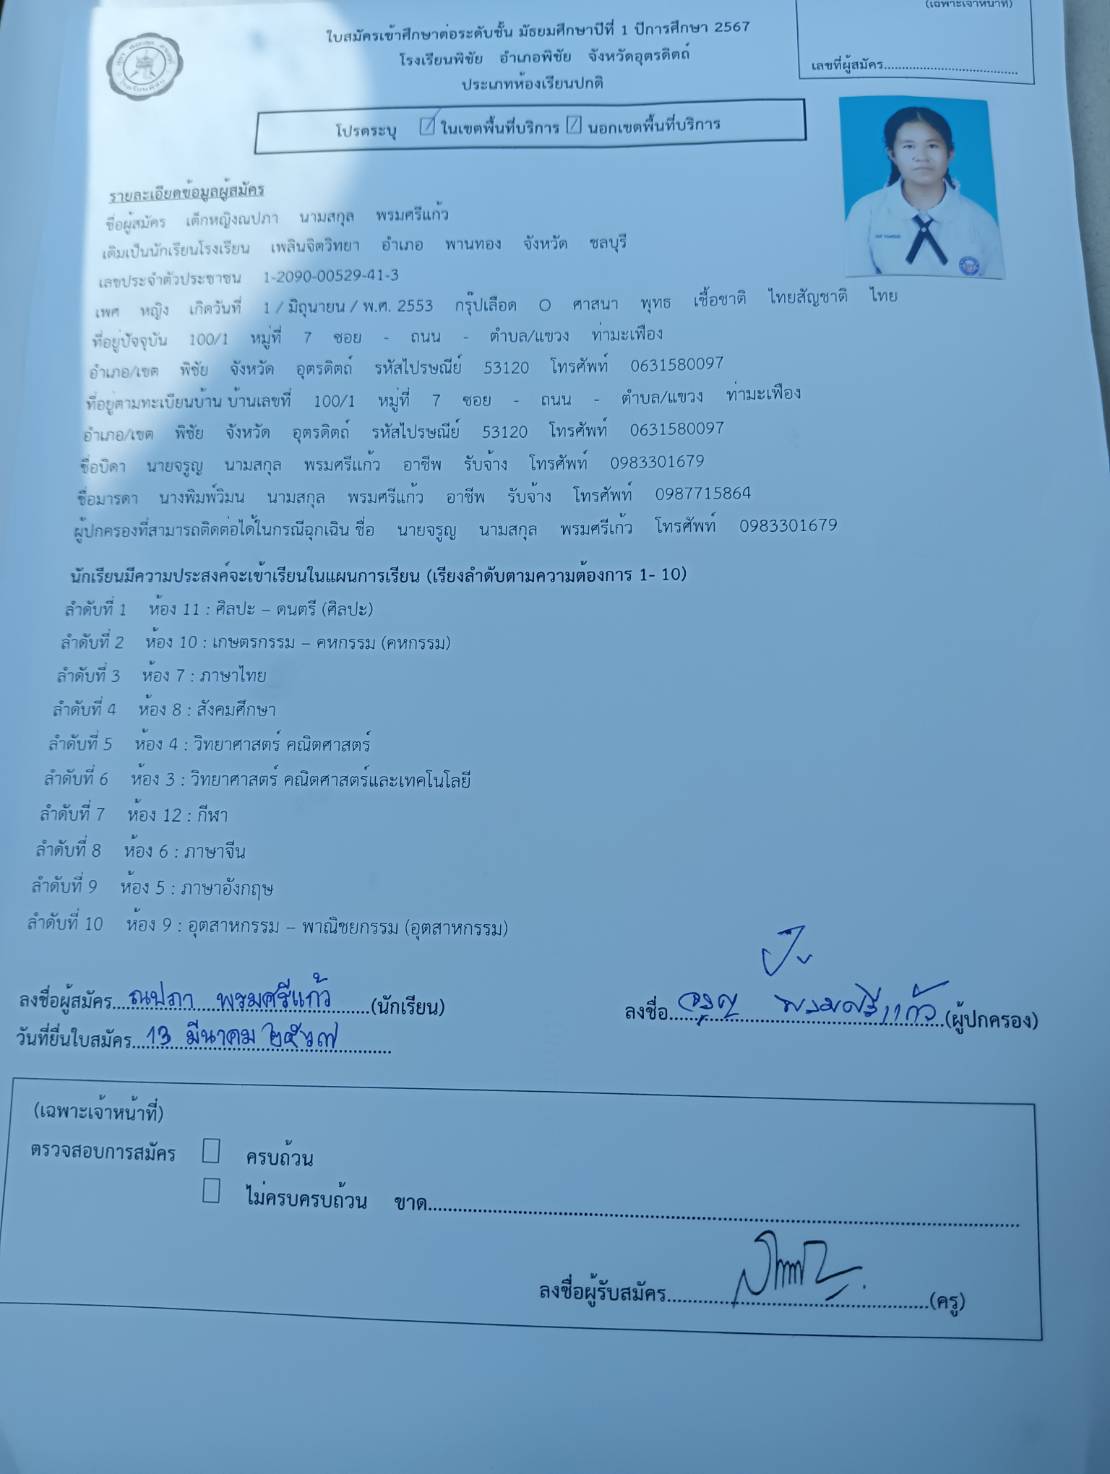 (เฉพาะเจ้าหน้าที่)
เลขที่ผู้สมัคร
ใบสมัครเข้าศึกษาต่อระดับชั้น มัธยมศึกษาปีที่ 1 ปีการศึกษา 2567
โรงเรียนพิชัย อำเภอพิชัย จังหวัดอุตรดิตถ์
ประเภทห้องเรียนปกติ
โปรดระบุ ในเขตพื้นที่บริการ นอกเขตพื้นที่บริการ
รายละเอียดข้อมูลผู้สมัคร
ชื่อผู้สมัคร เด็กหญิงณปภา นามสกุล พรมศรีแก้ว
เดิมเป็นนักเรียนโรงเรียน เพลินจิตวิทยา อำเภอ พานทอง จังหวัด ชลบุรี
เลขประจำตัวประชาชน 1-2090-00529-41-3
เพศ หญิง เกิดวันที่ 1 / มิถุนายน / พ.ศ. 2553 กรุ๊ปเลือด O ศาสนา พุทธ เชื้อชาติ ไทยสัญชาติ ไทย
ที่อยู่ปัจจุบัน 100/1 หมู่ที่ 7 ซอย - ถนน - ตำบล/แขวง ท่ามะเฟือง
อำเภอ/เขต พิชัย จังหวัด อุตรดิตถ์ รหัสไปรษณีย์ 53120 โทรศัพท์ 0631580097
ที่อยู่ตามทะเบียนบ้าน บ้านเลขที่ 100/1 หมู่ที่ 7 ซอย - ถนน - ตำบล/แขวง ท่ามะเฟือง
อำเภอ/เขต พิชัย จังหวัด อุตรดิตถ์ รหัสไปรษณีย์ 53120 โทรศัพท์ 0631580097
ชื่อบิดา นายจรูญ นามสกุล พรมศรีแก้ว อาชีพ รับจ้าง โทรศัพท์ 0983301679
ชื่อมารดา นางพิมพ์วิมน นามสกุล พรมศรีแก้ว อาชีพ รับจ้าง โทรศัพท์ 0987715864
ผู้ปกครองที่สามารถติดต่อได้ในกรณีฉุกเฉิน ชื่อ นายจรูญ นามสกุล พรมศรีแก้ว โทรศัพท์ 0983301679
นักเรียนมีความประสงค์จะเข้าเรียนในแผนการเรียน (เรียงลำดับตามความต้องการ 1- 10)
ลำดับที่ 1 ห้อง 11 : ศิลปะ – ดนตรี (ศิลปะ)
ลำดับที่ 2 ห้อง 10 : เกษตรกรรม – คหกรรม (คหกรรม)
ลำดับที่ 3 ห้อง 7 : ภาษาไทย
ลำดับที่ 4 ห้อง 8 : สังคมศึกษา
ลำดับที่ 5 ห้อง 4 : วิทยาศาสตร์ คณิตศาสตร์
ลำดับที่ 6 ห้อง 3 : วิทยาศาสตร์ คณิตศาสตร์และเทคโนโลยี
ลำดับที่ 7 ห้อง 12 : กีฬา
ลำดับที่ 8 ห้อง 6 : ภาษาจีน
ลำดับที่ 9 ห้อง 5 : ภาษาอังกฤษ
ลำดับที่ 10 ห้อง 9 : อุตสาหกรรม – พาณิชยกรรม (อุตสาหกรรม)
ลงชื่อผู้สมัคร ณปภา พรมศรีแก้ว (นักเรียน)
ลงชื่อ จรูญ พรมศรีแก้ว (ผู้ปกครอง)
วันที่ยื่นใบสมัคร 13 มีนาคม ๒๕๖๗
(เฉพาะเจ้าหน้าที่)
ตรวจสอบการสมัคร ครบถ้วน
ไม่ครบครบถ้วน ขาด
ลงชื่อผู้รับสมัคร (ครู)